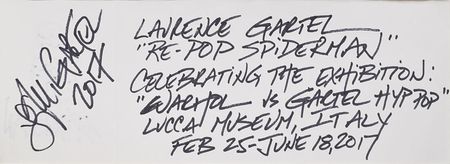 Gartel
2017
LAURENCE GARTEL
"RE-POP SPIDERMAN"
CELEBRATING THE EXHIBITION:
"WARHOL VS GARTEL HYP POP"
LUCCA MUSEUM, ITALY
FEB 25-JUNE 18, 2017